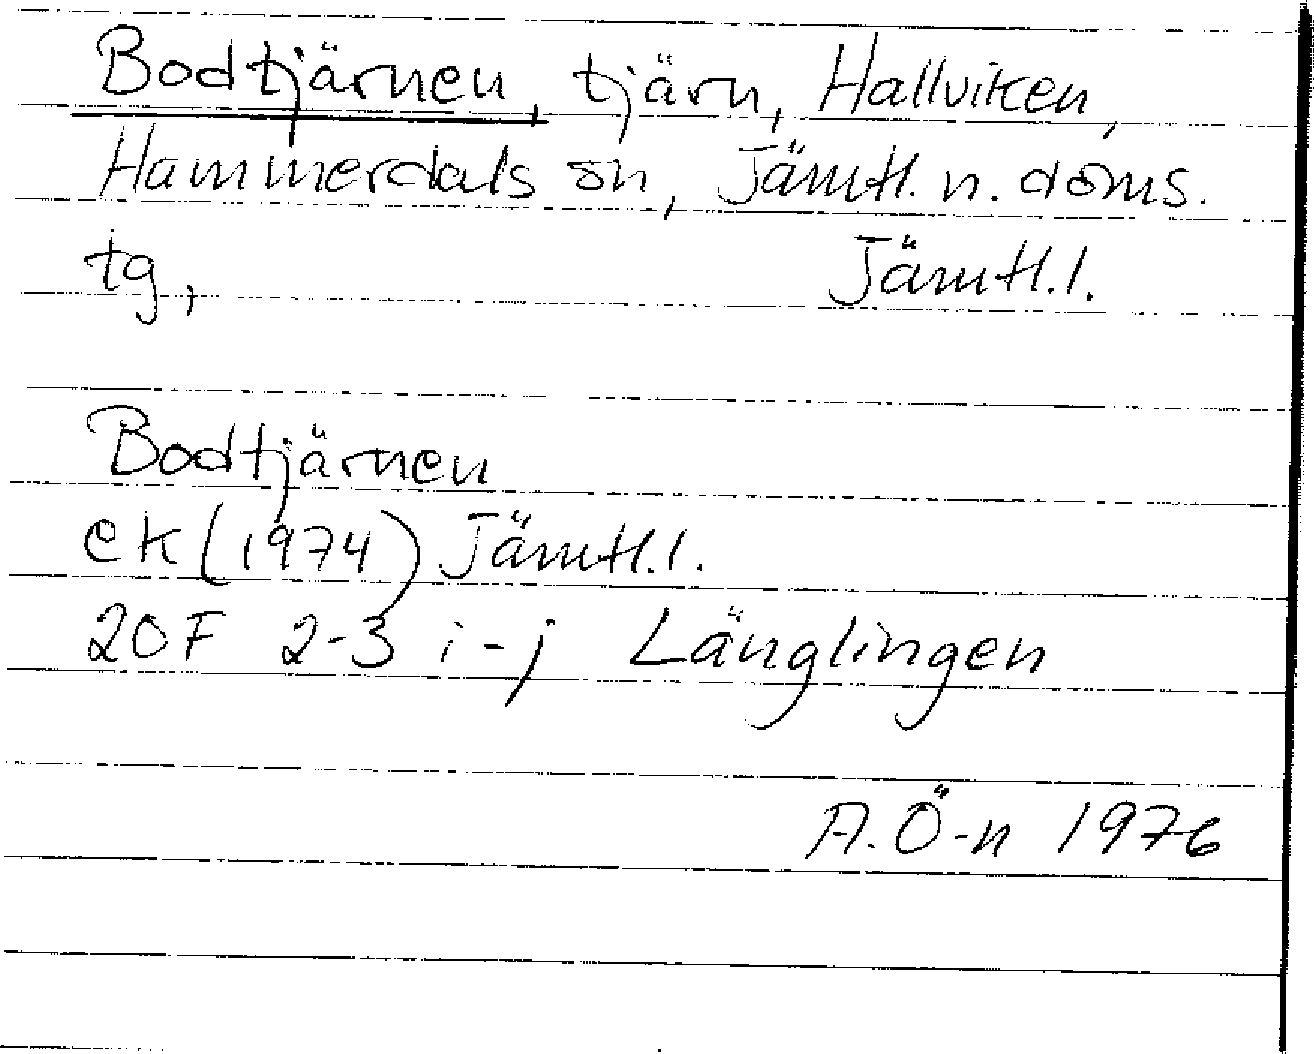 Bodtjärnen, tjärn, Hallviken,
Hammerdals sn, Jämtl. n. doms.
tg, Jämtl. l.
Bodtjärnen
ek (1974) Jämtl. l.
20F 2-3 i-j Länglingen
A. Ö-n 1976